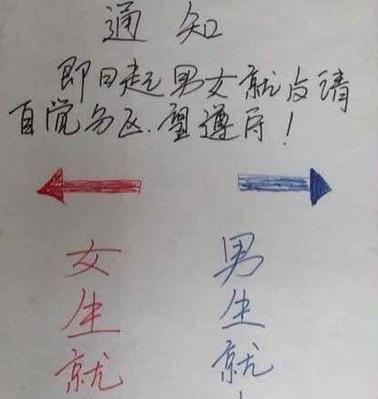 通知
即日起男女就请
自觉分区.望遵守!
女生就
男生就